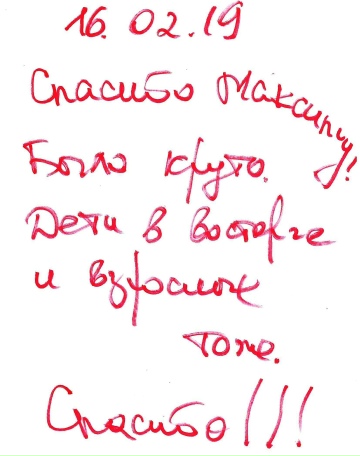 16.02.19
Спасибо Максиму!
Было круто.
Дети в восторге
и взрослые
тоже.
Спасибо!!!